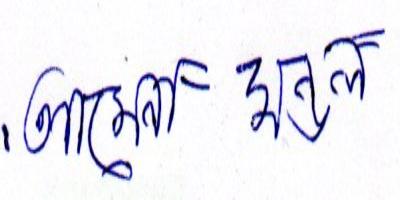 আমেনা মন্ডল